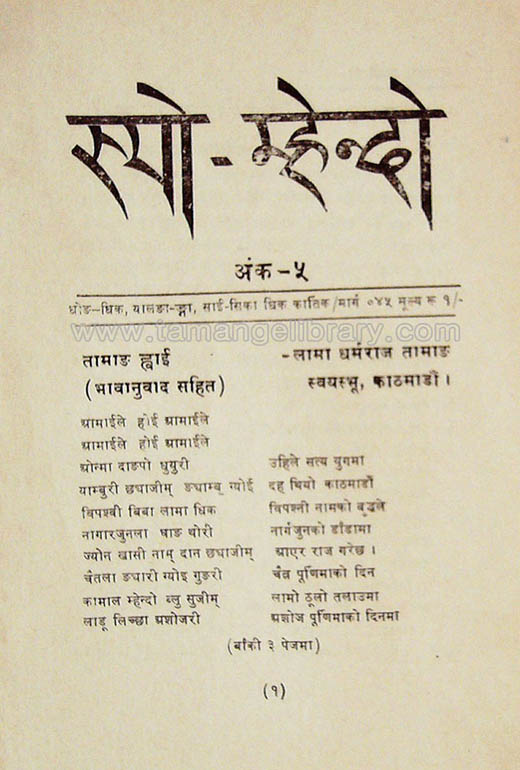 स्यो - म्हेन्दो
अंक - ५
धोङ-धिक, यालङा-ङ्गा, साई-सिका धिक कार्तिक/मार्ग ०४५ मूल्य रू १/-
www.tamangelibrary.com
तामाङ ह्वाई
(भावानुवाद सहित)
-लामा धर्मराज तामाङ
स्वयम्भू, काठमाडौं ।
आमाईले होई आमाईले
आमाईले होई आमाईले
ओन्मा दाङपो धुयुरी
याम्बुरी छघाजीम् ङघाम्ब् ग्योई
विपश्वी बिबा लामा धिक
नागारजुनला घाङ थोरी
ज्योन खासी नाम् दान छघाजीम्
चैतला ङ्यारी ग्योइ गुङरी
कामाल म्हेन्दो ब्लु सुजीम्
लाडू लिच्छा अशोजरी
उहिले सत्य युगमा
दह थियो काठमाडौं
विपश्नी नामको बुद्धले
नार्गजुनको डाँडामा
आएर राज गरेछ ।
चैत्र पूर्णिमाको दिन
लामो ठूलो तलाउमा
अशोज पूर्णिमाको दिनमा
(बाँकी ३ पेजमा)
(१)